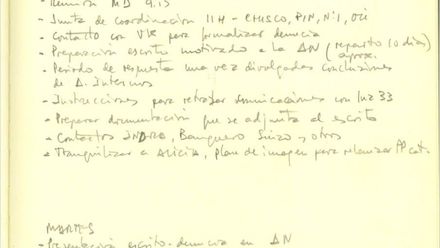 - Reunión MD 9.15
- Junta de coordinación 11H - CHISCO, PIN, Ni1, Oti
- Contacto con VR para formalizar denuncia
- Preparación escrito motivado a la AN (reparto 10 días) aprox.
- Periodo de respuesta una vez divulgadas conclusiones
de A. Internos
- Instrucciones para retrasar comunicaciones con luz 33
- Preparar documentación que se adjunta al escrito
- Contactos INDRA, Banquero Suizo y otros
- Tranquilizar a ALICIA, plan de imagen para relanzar PP cat.
MARTES
- Presentación escrito-denuncia en AN